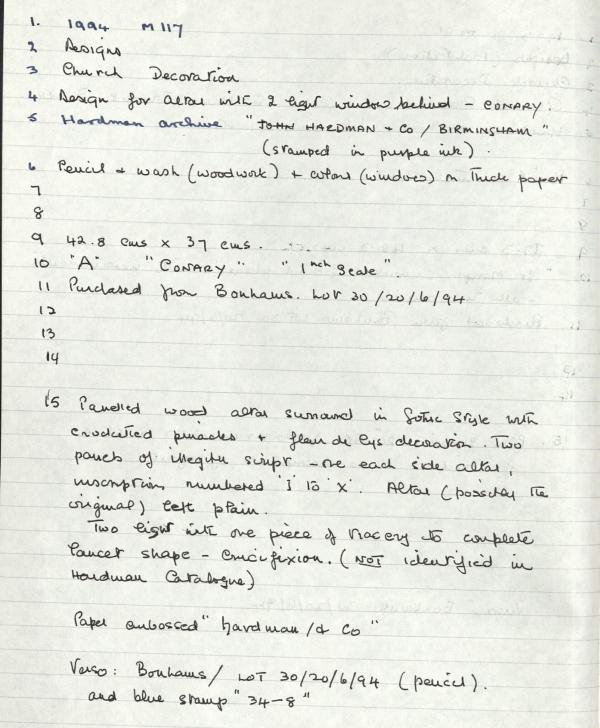 1. 1994 M117
2 Designs
3 Church Decoration
4 Design for altar with 2 light window behind - CONARY.
5 Hardman archive "JOHN HARDMAN + Co / BIRMINGHAM"
(stamped in purple ink).
6 Pencil + wash (woodwork) + colours (windows) on Thick paper
7
8
9 42.8 cms x 37 cms.
10 "A" "CONARY" "1 inch Scale".
11 Purchased from Bonhams. LOT 30/20/6/94
12
13
14
15 Panelled wood altar surround in Gothic Style with
crocketted pinacles + fleur de lys decoration. Two
panels of illegible script - one each side altar,
inscription numbered 'I' to 'X'. Altar (possibly the
original) left plain.
Two light with one piece of tracery to complete
lancet shape - Crucifixion. (NOT identified in
Hardman Catalogue)
Paper embossed "hardman /+ Co"
Verso: Bonhams/ LOT 30/20/6/94 (pencil).
and blue stamp "34-8"